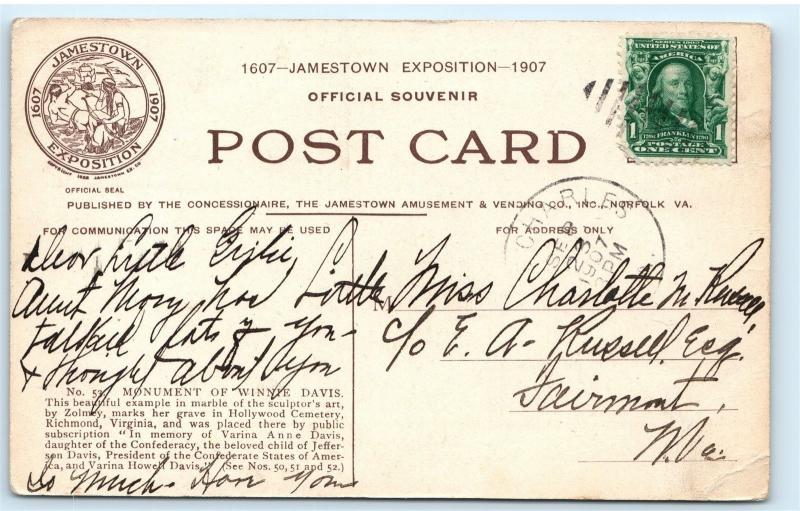 JAMESTOWN
1607 1907
EXPOSITION
COPYRIGHT 1906 JAMESTOWN EX. CO
OFFICIAL SEAL
1607—JAMESTOWN EXPOSITION—1907
OFFICIAL SOUVENIR
POST CARD
SERIES 1902
UNITED STATES OF
AMERICA
1 1706 FRANKLIN 1790 1
POSTAGE
ONE CENT
PUBLISHED BY THE CONCESSIONAIRE, THE JAMESTOWN AMUSEMENT & VENDING CO., INC., NORFOLK VA.
FOR COMMUNICATION THIS SPACE MAY BE USED
FOR ADDRESS ONLY
CHARLES
SEP 3
1907
PM
Dear Little
Aunt Mary
talked lots of you
& thought about you
No. 53. MONUMENT OF WINNIE DAVIS.
This beautiful example in marble of the sculptor's art,
by Zolmey, marks her grave in Hollywood Cemetery,
Richmond, Virginia, and was placed there by public
subscription "In memory of Varina Anne Davis,
daughter of the Confederacy, the beloved child of Jeffer-
son Davis, President of the Confederate States of Amer-
ica, and Varina Howell Davis." (See Nos. 50, 51 and 52.)
So much. Have you
M
Miss Charlotte M. Russell,
c/o E. A. Russell, Esq.
Fairmont,
W. Va.